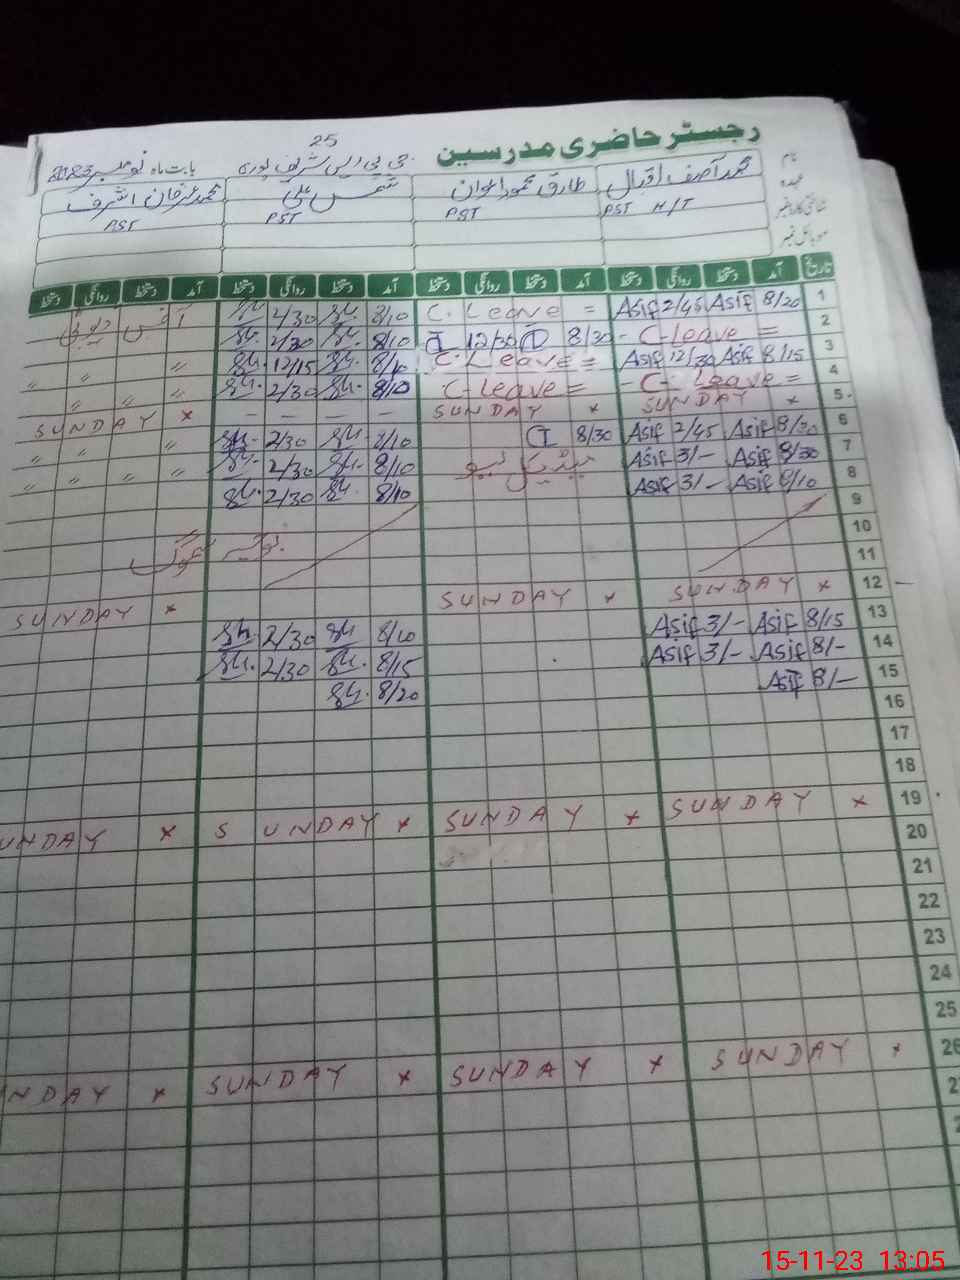 رجسٹر حاضری مدرسین
25
بابت ماہ نومبر 2023
نام محمد آصف اقبال طارق محمود اعوان شمس علی محمد عرفان اشرف
عہدہ PST H/T PST PST PST
شناختی کارڈ نمبر
موبائل نمبر
تاریخ آمد دستخط روانگی دستخط آمد دستخط روانگی دستخط آمد دستخط روانگی دستخط آمد دستخط روانگی دستخط
1 8/20 Asif 2/45 Asif C. Leave = 8/10 2/30
2 C-Leave = 8/30 12/30 8/10 2/30
3 8/15 Asif 12/30 Asif C. Leave = 8/10 12/15 " " "
4 C. Leave = C-Leave = 8/10 2/30 " " "
5 SUNDAY × SUNDAY × — — — — SUNDAY ×
6 8/30 Asif 2/45 Asif 8/30 8/10 2/30 " " "
7 8/30 Asif 3/- Asif میڈیکل لیو 8/10 2/30 " " " "
8 8/10 Asif 3/- Asif 8/10 2/30
9
10
11
12 SUNDAY × SUNDAY × SUNDAY ×
13 8/15 Asif 3/- Asif 8/10 2/30
14 8/- Asif 3/- Asif 8/15 2/30
15 8/- Asif 8/20
16
17
18
19 SUNDAY × SUNDAY × SUNDAY × UNDAY ×
20
21
22
23
24
25
26 SUNDAY × SUNDAY × SUNDAY × NDAY ×
15-11-23 13:05